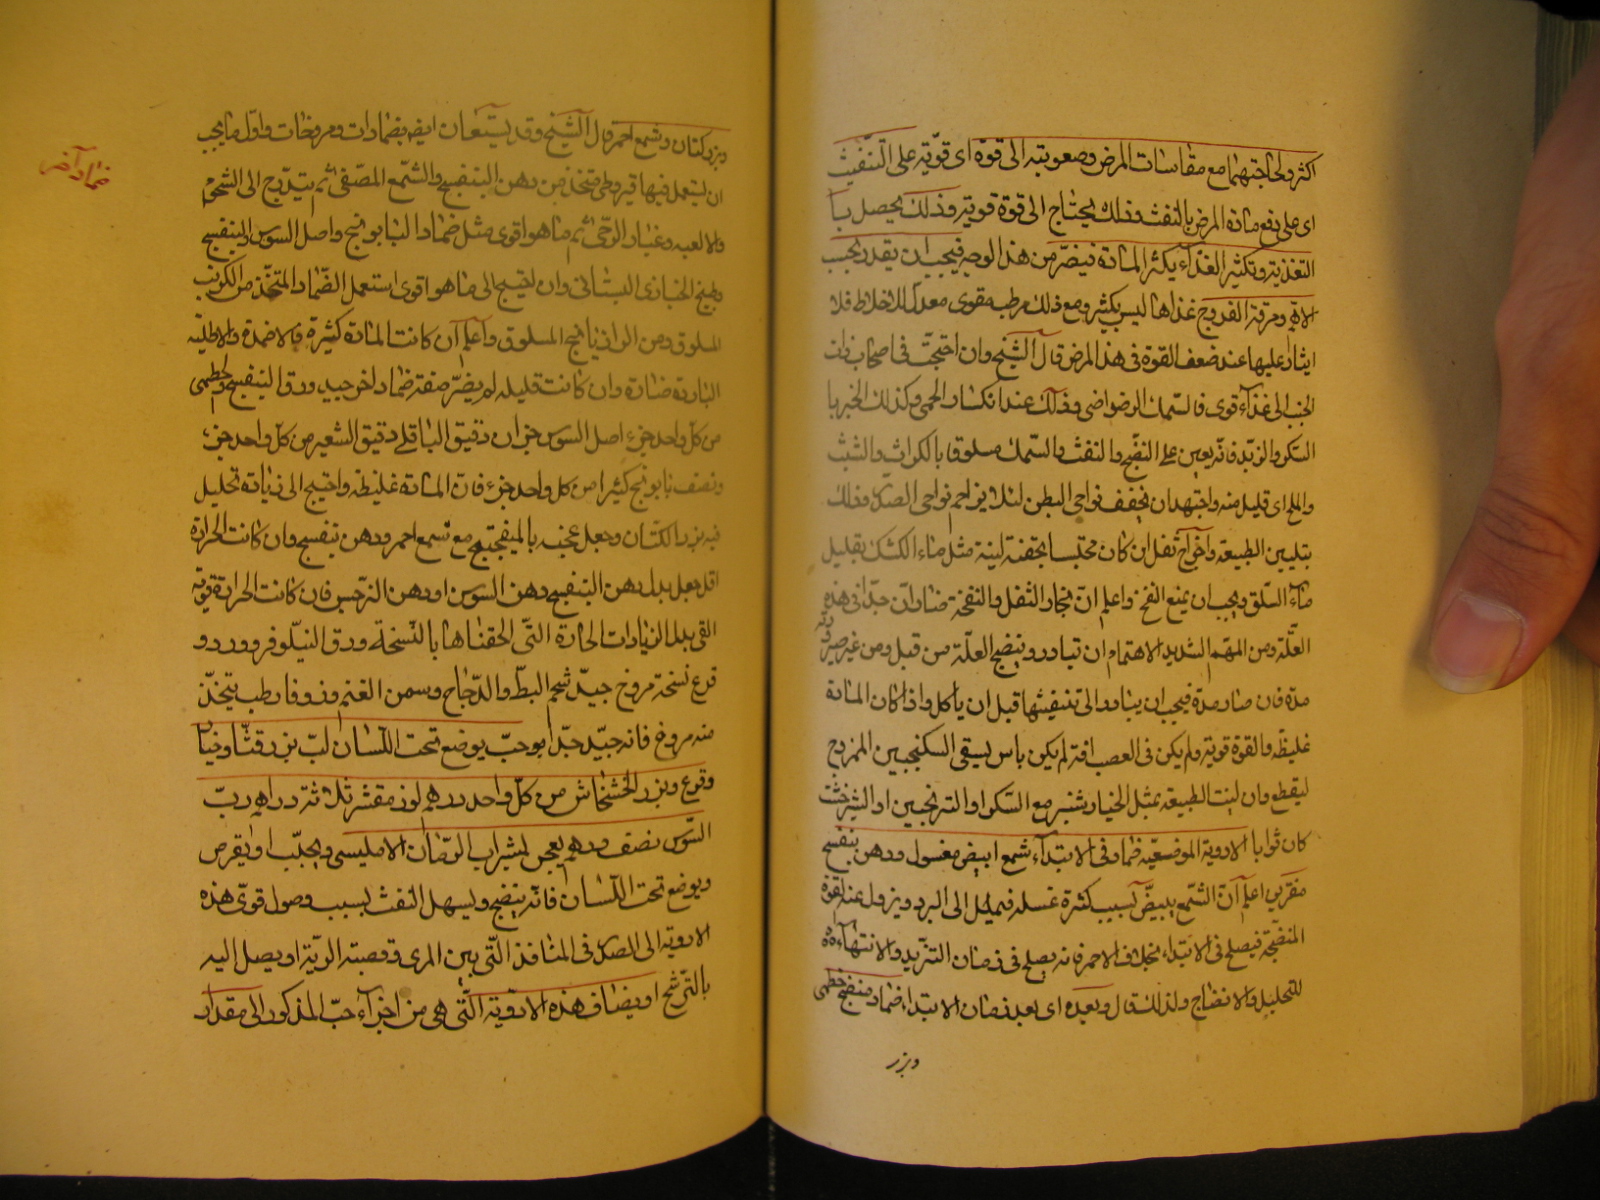 اكثر ولحاجتهما مع مقاسات المرض وصعوبته الى قوة اى قوية على التنفيث
اى على دفع مادة المرض بالنفث وذلك يحتاج الى قوة قوية وذلك يحصل با
التغذية وتكثير الغذاء يكثر المادة فيضر من هذا الوجه فيجب ان يقدر بحسب
ومرقة الفروج غذاها ليس بكثير ومع ذلك مرطب مقوى معدل للاخلاط فلا
ايثار عليها عند ضعف القوة فى هذا المرض قال الشيخ وان احتجت فى اصحاب ذات
الجنب الى غذاء قوى فالسمك الرضراضى وذلك عند انكسار الحمى وكذلك الخبز با
السكر والزبد فانه يعين على النضج والنفث والسمك مسلوقا بالكراث والشبث
والملح اى قليل منه واجتهد ان يخفف نواحى البطن لئلا يزاحم نواحى الصدر وذلك
بتليين الطبيعة واخراج ثفل ان كان محتبسا بحقنة لينة مثل ماء الكشك بقليل
ماء السلق ويجب ان يمنع النفخ واعلم ان بخار الثفل والنفخة ضاران جدا فى هذه
العلة ومن المهم الشديد الاهتمام ان تبادر وتنضج العلة من قبل ومن غير صيرورته
مدة فان صار مدة فيجب ان يبادر الى تنفيثها قبل ان ياكل واذا كان المادة
غليظة والقوة قوية ولم يكن فى العصب افة لم يكن باس بسقى السكنجبين الممزوج
ليقطع وان لينت الطبيعة بمثل الخيارشنبر مع السكر او الترنجبين او الشيرخشت
كان صوابا الادوية الموضعية ضماد فى الابتداء شمع ابيض مغسول ودهن بنفسج
اعلم ان الشمع يبيض بسبب كثرة غسله فيميل الى البرد ويزول عنه القوة
المنضجة فيصلح فى الابتداء بخلاف الاحمر فانه يصلح فى زمان التزيد والانتهاء
للتحليل والانضاج ولذلك قال وبعده اى بعد زمان الابتداء ضماد منضج خطمى
وبزر
وبزر كتان وشمع احمر قال الشيخ وقد يستعان ايضا بضمادات ومروخات واول ما يجب
ان يستعمل فيها قيروطى متخذ من دهن البنفسج والشمع المصفى ثم يتدرج الى الشحم
والالعبه وغبار الرحى ثم ما هو اقوى مثل ضماد البابونج واصل السوس والبنفسج
وطبيخ الخبازى البستانى وان احتيج الى ما هو اقوى استعمل الضماد المتخذ من الكرنب
المسلوق ومن الرازيانج المسلوق واعلم ان كانت المادة كثيرة فالاضمدة والاطلية
الباردة ضارة وان كانت قليله لم يضر صفة ضماد اخر جيد ورق البنفسج وخطمى
من كل واحد جزء اصل السوس جزان دقيق الباقلى دقيق الشعير من كل واحد جزء
ونصف بابونج كثيرا من كل واحد جزء فان المادة غليظة واحتيج الى زيادة تحليل
فيه بزر الكتان وجعل عجنه بالميفختج مع شمع احمر ودهن بنفسج وان كانت الحرارة
اقل جعل بدل دهن البنفسج دهن السوسن او دهن النرجس فان كانت الحرارة قوية
القى بدل الزيادات الحارة التى الحقناها بالنسخة ورق النيلوفر وورد و
قرع نسخة مروخ جيد شحم البط والدجاج وسمن الغنم وزوفا رطب يتخذ
منه مروخ فانه جيد جدا حب يوضع تحت اللسان لب بزر قثا وخيار
وقرع وبزر الخشخاش من كل واحد درهم لوز مقشر ثلاثة دراهم رب
السوس نصف درهم يعجن بشراب الرمان الامليسى ويحبب او يقرص
ويوضع تحت اللسان فانه ينضج ويسهل النفث بسبب وصول قوى هذه
الادوية الى الصدر فى المنافذ التى بين المرى وقصبة الرية او يصل اليه
بالترشح او يضاف هذه الادوية التى هى من اجزاء حب المذكور الى مقدار
ضماد آخر